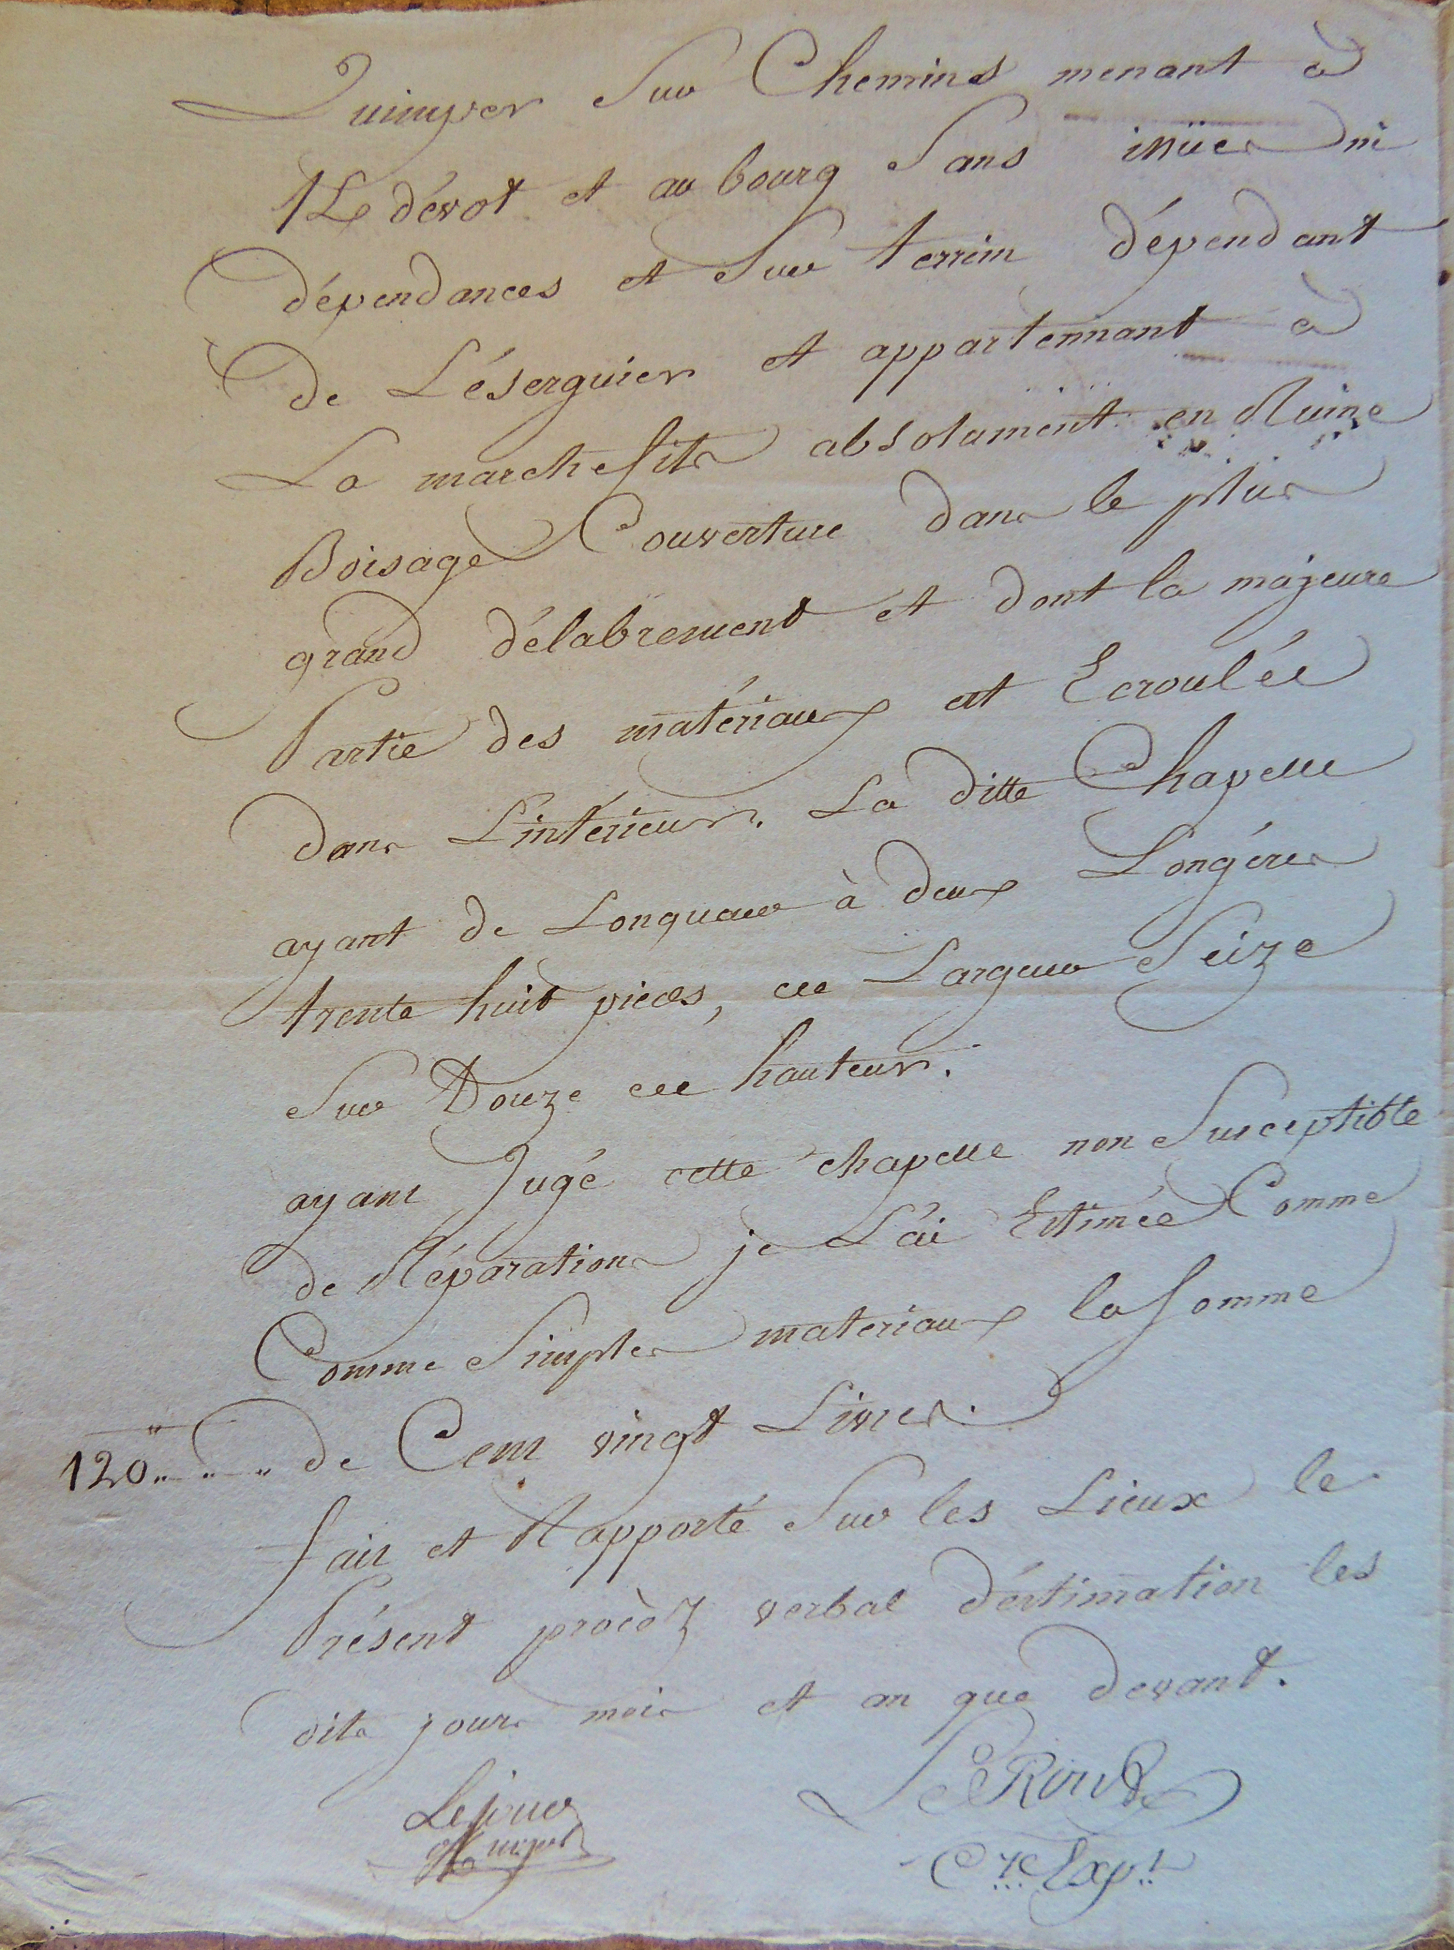 Quimper Sur Chemins menant à
dévot et au bourg Sans issües ni
dépendances et Sur terrin dépendant
de Léserguier et appartennant à
La marche sits absolument en Ruine
Boisage Couverture dans le plus
grand délabrement et dont la majeure
Partie des matériaux est Ecroulée
dans L'intérieur. La ditte Chapelle
ayant de Longueur à deux Longéres
trente huit pieds, de Largeur Seize
Sur Douze de hauteur.
ayant Jugé cette chapelle non Susceptible
de Réparations je L'ai Estimée Comme
Comme Simples materiaux la somme
120 de Cent vingt Livres.
fait et Rapporté Sur les Lieux le
Présent procèz verbal d'éstimation les
dits jours mois et an que devant.
Le
Exp.t